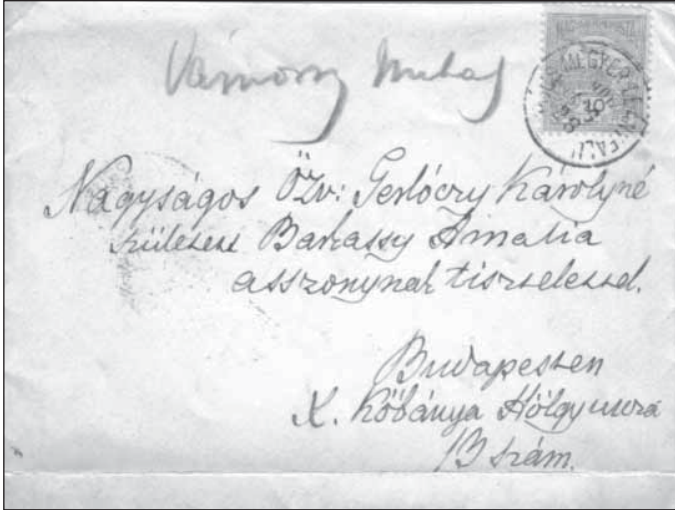 Nagyságos Özv: Gerlóczy Károlyné
született Barkassy Amalia
asszonynak tisztelettel.
Budapesten
X. Kőbánya Hölgy utcza
13 szám.